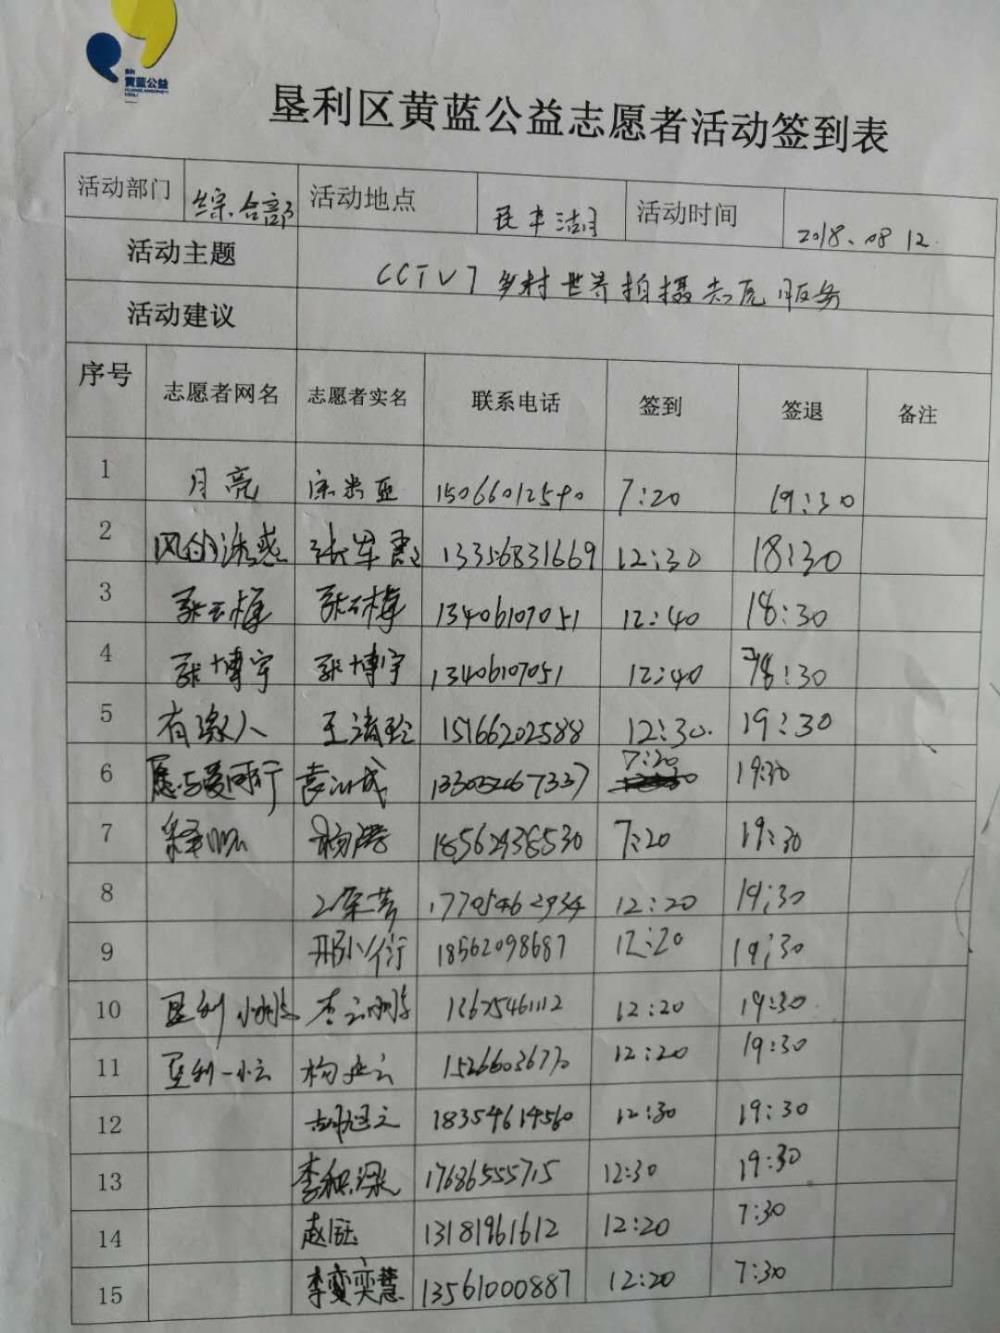 黄蓝公益
垦利区黄蓝公益志愿者活动签到表
活动部门 综合部 活动地点 民丰湖 活动时间 2018.08 12.
活动主题 CCTV7乡村世界拍摄志愿服务
活动建议
序号 志愿者网名 志愿者实名 联系电话 签到 签退 备注
1 月亮 15066012590 7:20 19:30
2 风的诱惑 张军霞 13356831669 12:30 18:30
3 张云梅 张云梅 13406107051 12:40 18:30
4 张博宇 张博宇 13406107051 12:40 18:30
5 有缘人 王清玲 15166202588 12:30. 19:30
6 愿与爱同行 7:20 19:30
7 18562938530 7:20 19:30
8 17705462934 12:20 19:30
9 邢小衍 18562098687 12:20 19:30
10 垦利 12:20 19:30
11 垦利一小云 杨延云 12:20 19:30
12 18354614560 12:30 19:30
13 李和深 17686555715 12:30 19:30
14 赵钰 13181961612 12:20 7:30
15 李奕慧 13561000887 12:20 7:30